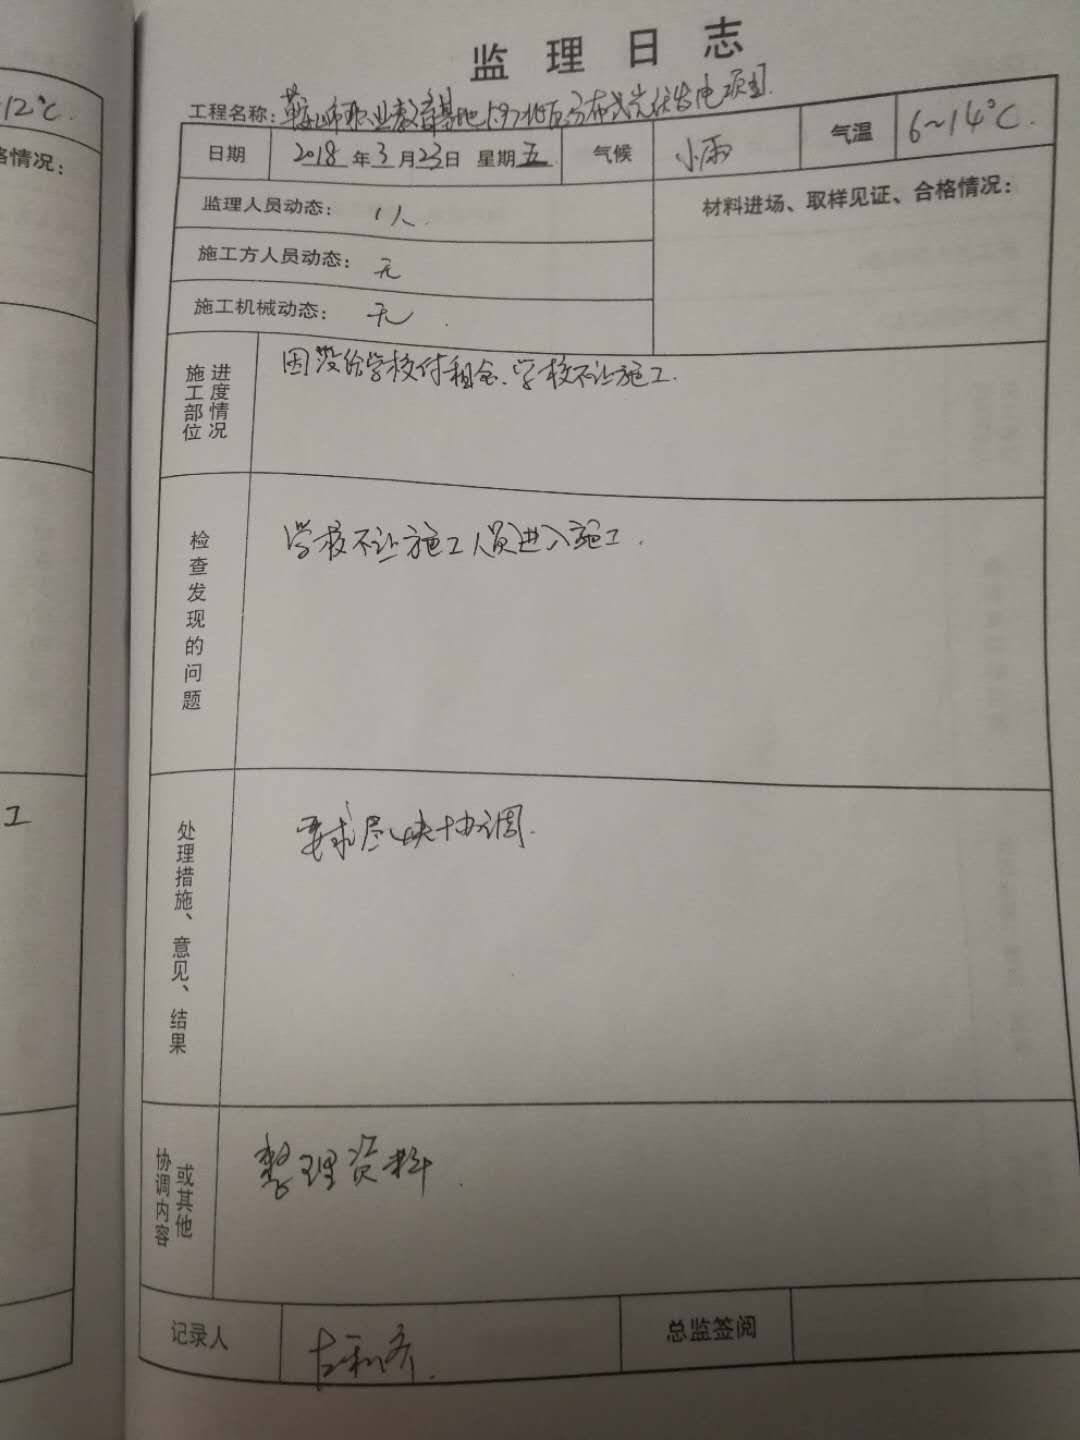 监理日志
工程名称：鞍山市职业教育基地1.97MW分布式光伏发电项目
日期 2018年3月23日 星期五 气候 小雨 气温 6~14℃.
监理人员动态： 1人.
材料进场、取样见证、合格情况：
施工方人员动态： 无
施工机械动态： 无.
施工部位进度情况 因没给学校付租金、学校不让施工.
检查发现的问题 学校不让施工人员进入施工.
处理措施、意见、结果 要求尽快协调.
协调内容或其他 整理资料.
记录人 总监签阅
12℃.
格情况：
工